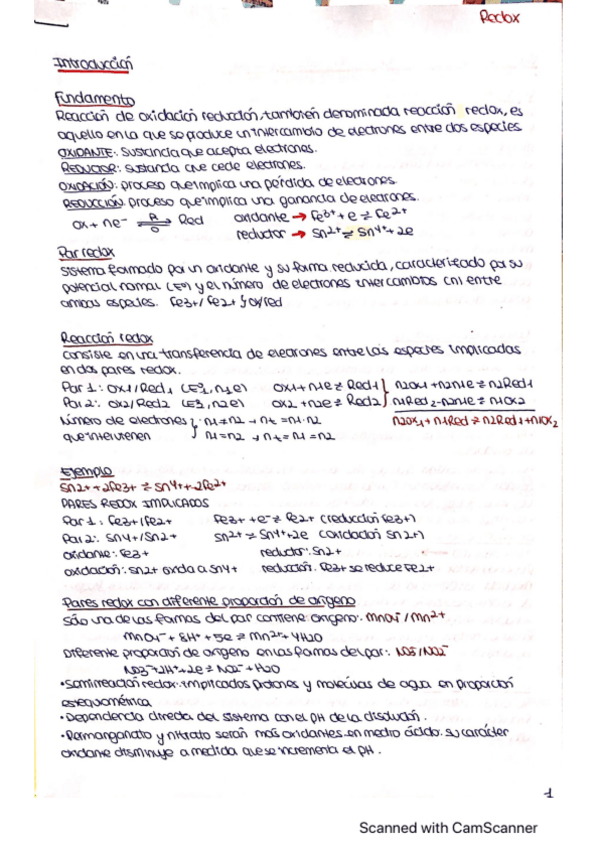 Redox
Introducción
Fundamento
Reacción de oxidación reducción, también denominada reacción redox, es
aquello en la que se produce un intercambio de electrones entre dos especies
OXIDANTE: Sustancia que acepta electrones.
REDUCTOR: sustancia que cede electrones.
OXIDACIÓN: proceso que implica una pérdida de electrones.
REDUCCIÓN: proceso que implica una ganancia de electrones.
ox + ne⁻ ⇌ Red oxidante → Fe3+ + e ⇌ Fe2+
reductor → Sn2+ ⇌ Sn4+ + 2e
Par redox
Sistema formado por un oxidante y su forma reducida, caracterizado por su
potencial normal (Eº) y el número de electrones intercambios (n) entre
ambas especies. Fe3+/Fe2+ y ox/red
Reacción redox
Consiste en una transferencia de electrones entre las especies implicadas
en dos pares redox.
Par 1: ox1/Red1 (Eº1, n1e) ox1 + n1e ⇌ Red1 } n2ox1 + n2n1e ⇌ n2Red1
Par 2: ox2/Red2 (Eº2, n2e) ox2 + n2e ⇌ Red2 } n1Red2 - n2n1e ⇌ n1Ox2
Número de electrones } n1 = n2 → nt = n1·n2 n2Ox1 + n1Red ⇌ n2Red1 + n1Ox2
que intervienen } n1 = n2 → nt = n1 = n2
Ejemplo
Sn2+ + 2Fe3+ ⇌ Sn4+ + 2Fe2+
PARES REDOX IMPLICADOS
Par 1: Fe3+/Fe2+ Fe3+ + e⁻ ⇌ Fe2+ (reducción Fe3+)
Par 2: Sn4+/Sn2+ Sn2+ ⇌ Sn4+ + 2e (oxidación Sn2+)
oxidante: Fe3+ reductor: Sn2+
oxidación: Sn2+ oxida a Sn4+ reducción: Fe3+ se reduce Fe2+
Pares redox con diferente proporción de oxígeno
Sólo una de las formas del par contiene oxígeno: MnO4⁻/Mn2+
MnO4⁻ + 8H+ + 5e ⇌ Mn2+ + 4H2O
Diferente proporción de oxígeno en las formas del par: NO3⁻/NO2⁻
NO3⁻ + 2H+ + 2e ⇌ NO2⁻ + H2O
• Semirreación redox: implicados protones y moléculas de agua en proporción
estequiométrica
• Dependencia directa del sistema con el pH de la disolución.
• Permanganato y nitrato serán más oxidantes en medio ácido: su carácter
oxidante disminuye a medida que se incrementa el pH.
1
Scanned with CamScanner